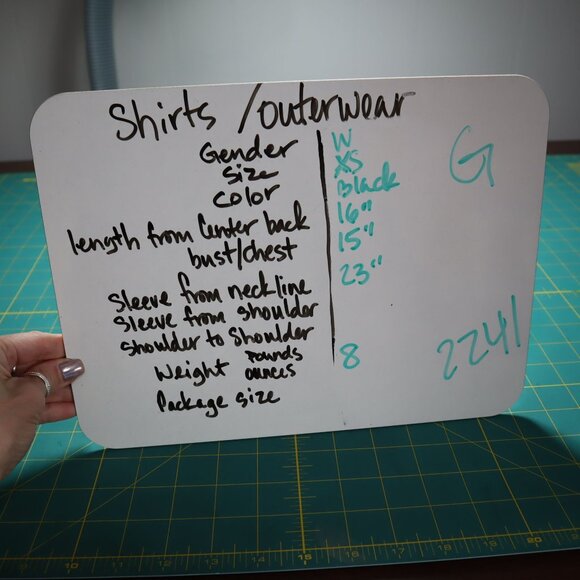 Shirts / outerwear
Gender W
size XS
color Black
length from Center back 16"
bust/chest 15"
Sleeve from neckline 23"
Sleeve from shoulder
Shoulder to Shoulder
Weight Pounds
ounces 8
Package size
G
2241
10
15
20